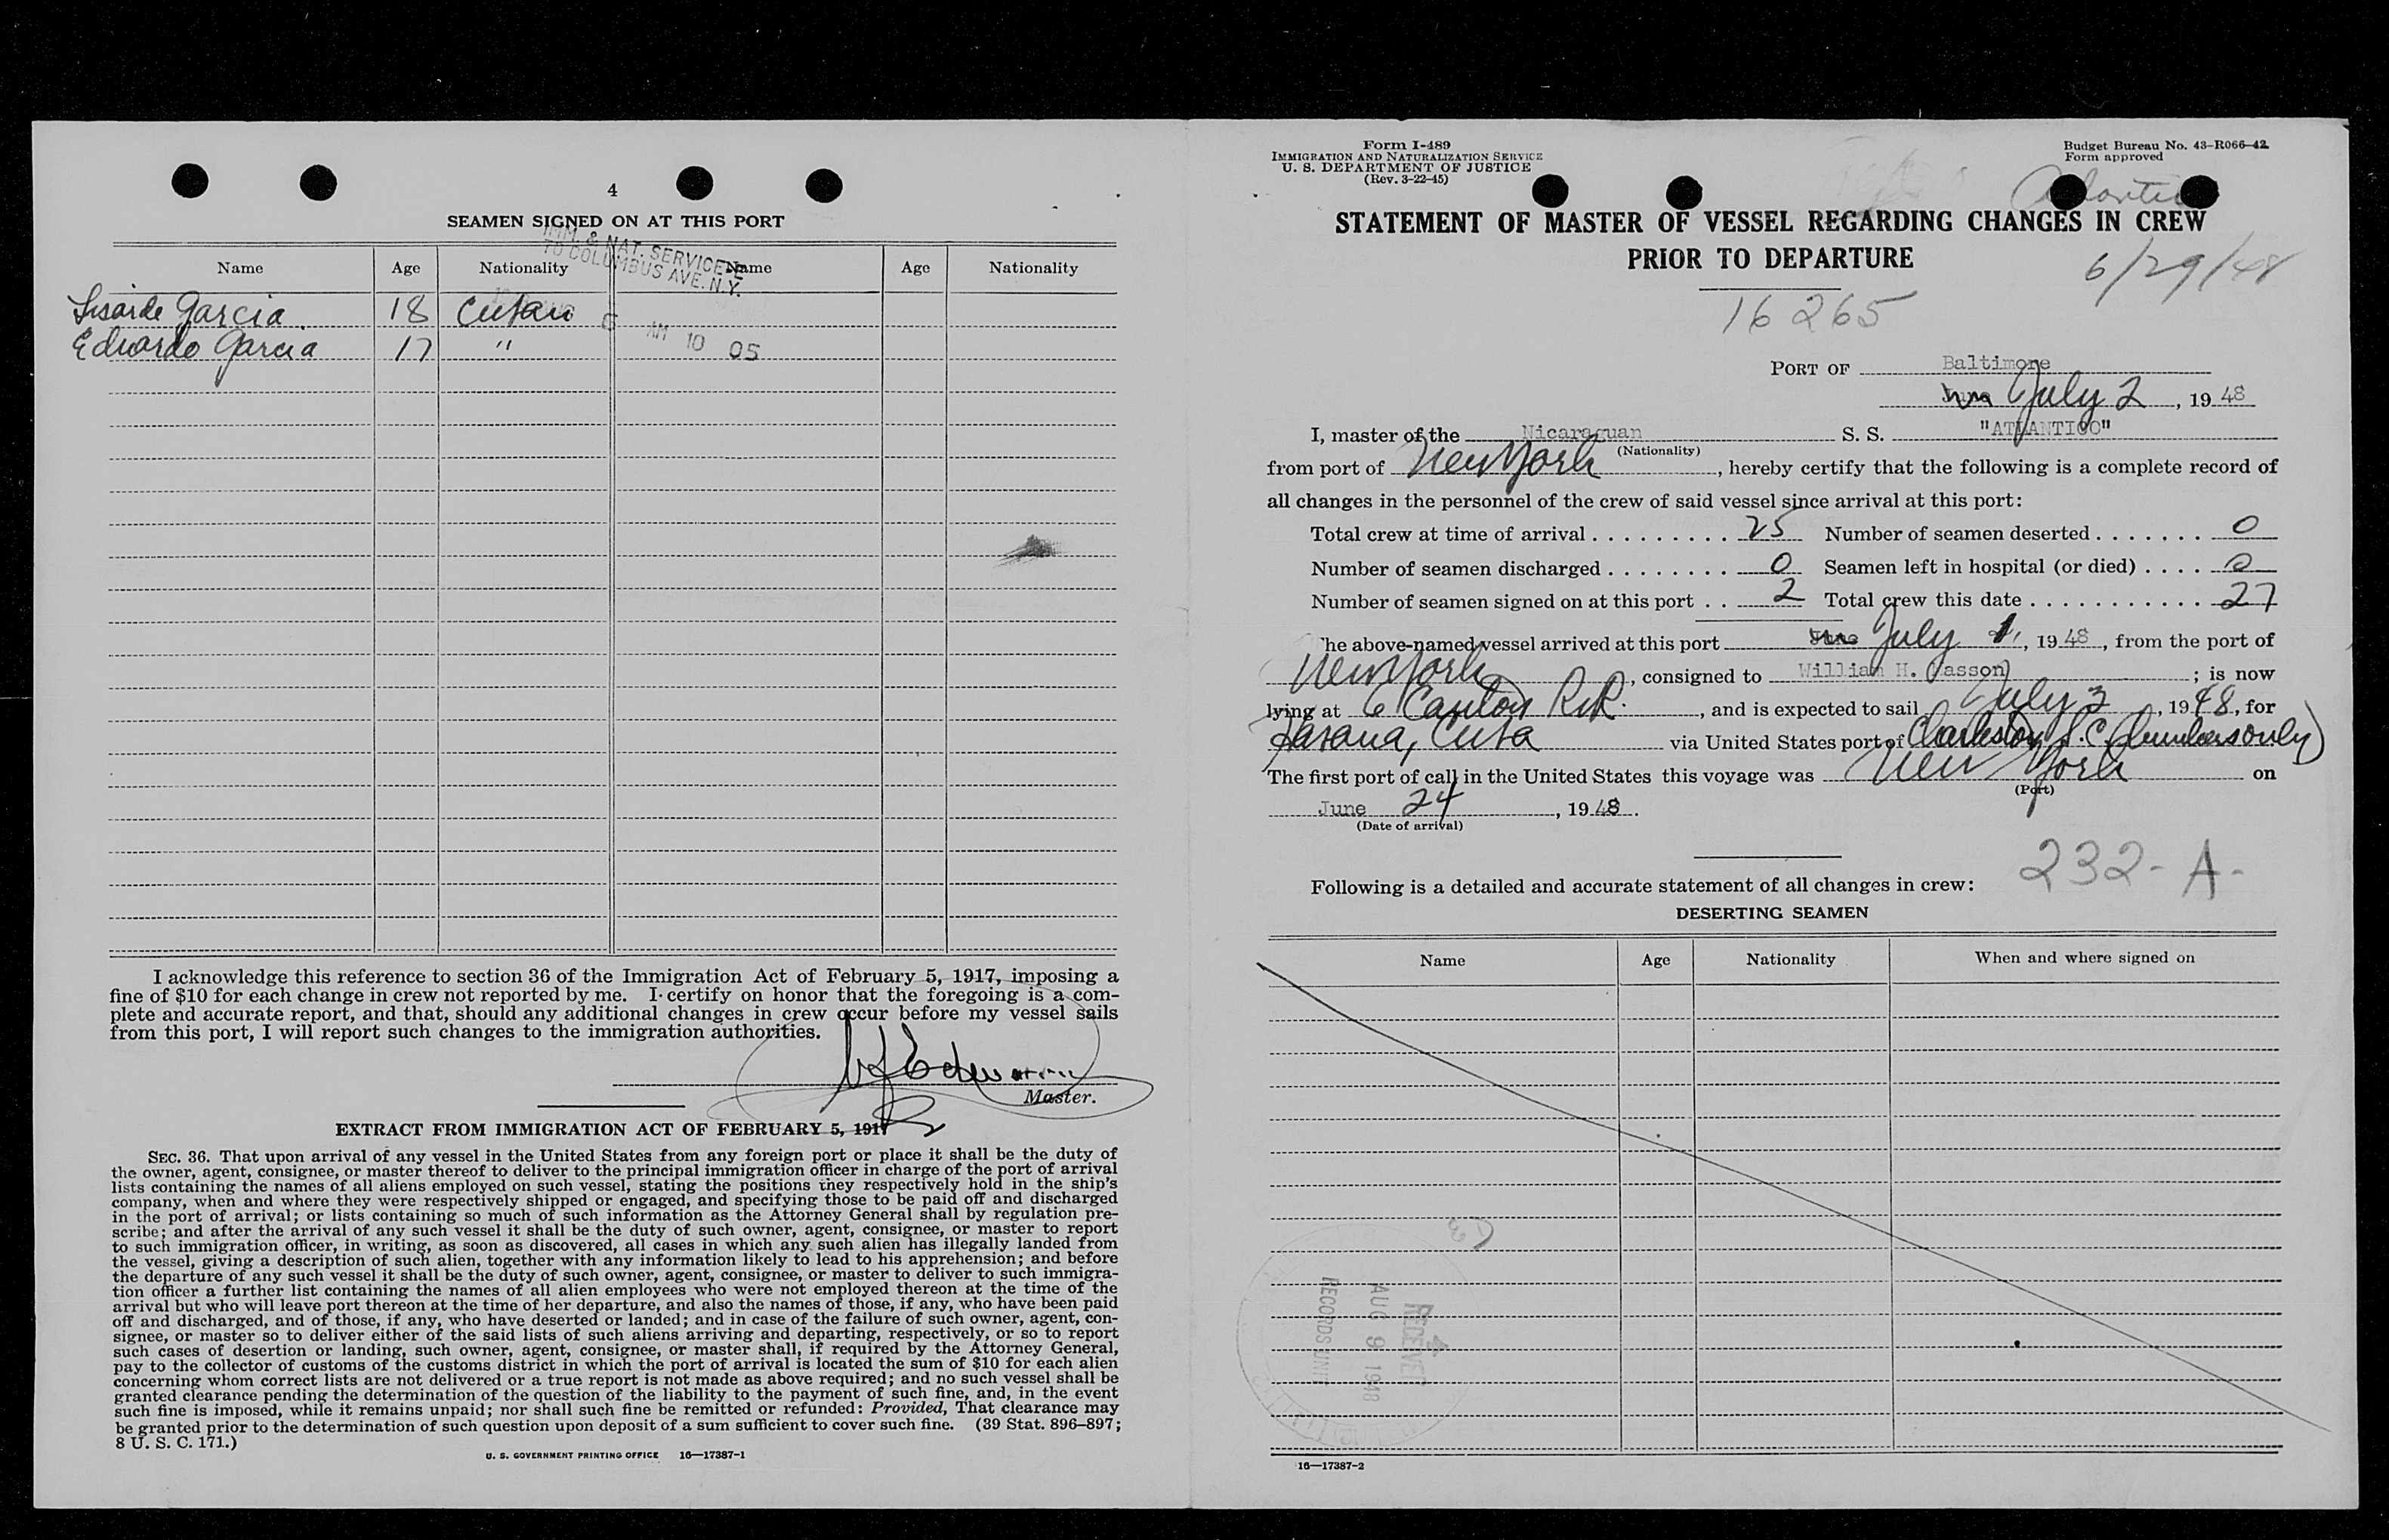 4
SEAMEN SIGNED ON AT THIS PORT
IMM. & NAT. SERVICE
70 COLUMBUS AVE. N.Y.
Name Age Nationality Name Age Nationality
Garcia 18 Cuban
AM 10 05
Eduardo Garcia 17 "
I acknowledge this reference to section 36 of the Immigration Act of February 5, 1917, imposing a
fine of $10 for each change in crew not reported by me. I certify on honor that the foregoing is a com-
plete and accurate report, and that, should any additional changes in crew occur before my vessel sails
from this port, I will report such changes to the immigration authorities.
Master.
EXTRACT FROM IMMIGRATION ACT OF FEBRUARY 5, 1917
SEC. 36. That upon arrival of any vessel in the United States from any foreign port or place it shall be the duty of
the owner, agent, consignee, or master thereof to deliver to the principal immigration officer in charge of the port of arrival
lists containing the names of all aliens employed on such vessel, stating the positions they respectively hold in the ship's
company, when and where they were respectively shipped or engaged, and specifying those to be paid off and discharged
in the port of arrival; or lists containing so much of such information as the Attorney General shall by regulation pre-
scribe; and after the arrival of any such vessel it shall be the duty of such owner, agent, consignee, or master to report
to such immigration officer, in writing, as soon as discovered, all cases in which any such alien has illegally landed from
the vessel, giving a description of such alien, together with any information likely to lead to his apprehension; and before
the departure of any such vessel it shall be the duty of such owner, agent, consignee, or master to deliver to such immigra-
tion officer a further list containing the names of all alien employees who were not employed thereon at the time of the
arrival but who will leave port thereon at the time of her departure, and also the names of those, if any, who have been paid
off and discharged, and of those, if any, who have deserted or landed; and in case of the failure of such owner, agent, con-
signee, or master so to deliver either of the said lists of such aliens arriving and departing, respectively, or so to report
such cases of desertion or landing, such owner, agent, consignee, or master shall, if required by the Attorney General,
pay to the collector of customs of the customs district in which the port of arrival is located the sum of $10 for each alien
concerning whom correct lists are not delivered or a true report is not made as above required; and no such vessel shall be
granted clearance pending the determination of the question of the liability to the payment of such fine, and, in the event
such fine is imposed, while it remains unpaid; nor shall such fine be remitted or refunded: Provided, That clearance may
be granted prior to the determination of such question upon deposit of a sum sufficient to cover such fine. (39 Stat. 896–897;
8 U. S. C. 171.)
U. S. GOVERNMENT PRINTING OFFICE 16—17387-1
Form I-489
IMMIGRATION AND NATURALIZATION SERVICE
U. S. DEPARTMENT OF JUSTICE
(Rev. 3-22-45)
Budget Bureau No. 43-R066-42
Form approved
Atlantico
STATEMENT OF MASTER OF VESSEL REGARDING CHANGES IN CREW
PRIOR TO DEPARTURE
6/29/48
16265
PORT OF Baltimore
July 2, 1948
I, master of the Nicaraguan S. S. "ATLANTICO"
(Nationality)
from port of New York, hereby certify that the following is a complete record of
all changes in the personnel of the crew of said vessel since arrival at this port:
Total crew at time of arrival 25 Number of seamen deserted 0
Number of seamen discharged 0 Seamen left in hospital (or died) 0
Number of seamen signed on at this port 2 Total crew this date 27
The above-named vessel arrived at this port June July 1, 1948, from the port of
New York, consigned to William H. Masson; is now
lying at 6 Canton R.R., and is expected to sail July 3, 1948, for
Havana, Cuba via United States port of Charleston S.C.
The first port of call in the United States this voyage was New York on
(Port)
June 24, 1948.
(Date of arrival)
232-A-
Following is a detailed and accurate statement of all changes in crew:
DESERTING SEAMEN
Name Age Nationality When and where signed on
RECEIVED
AUG 9 1948
RECORDS UNIT
16—17387-2